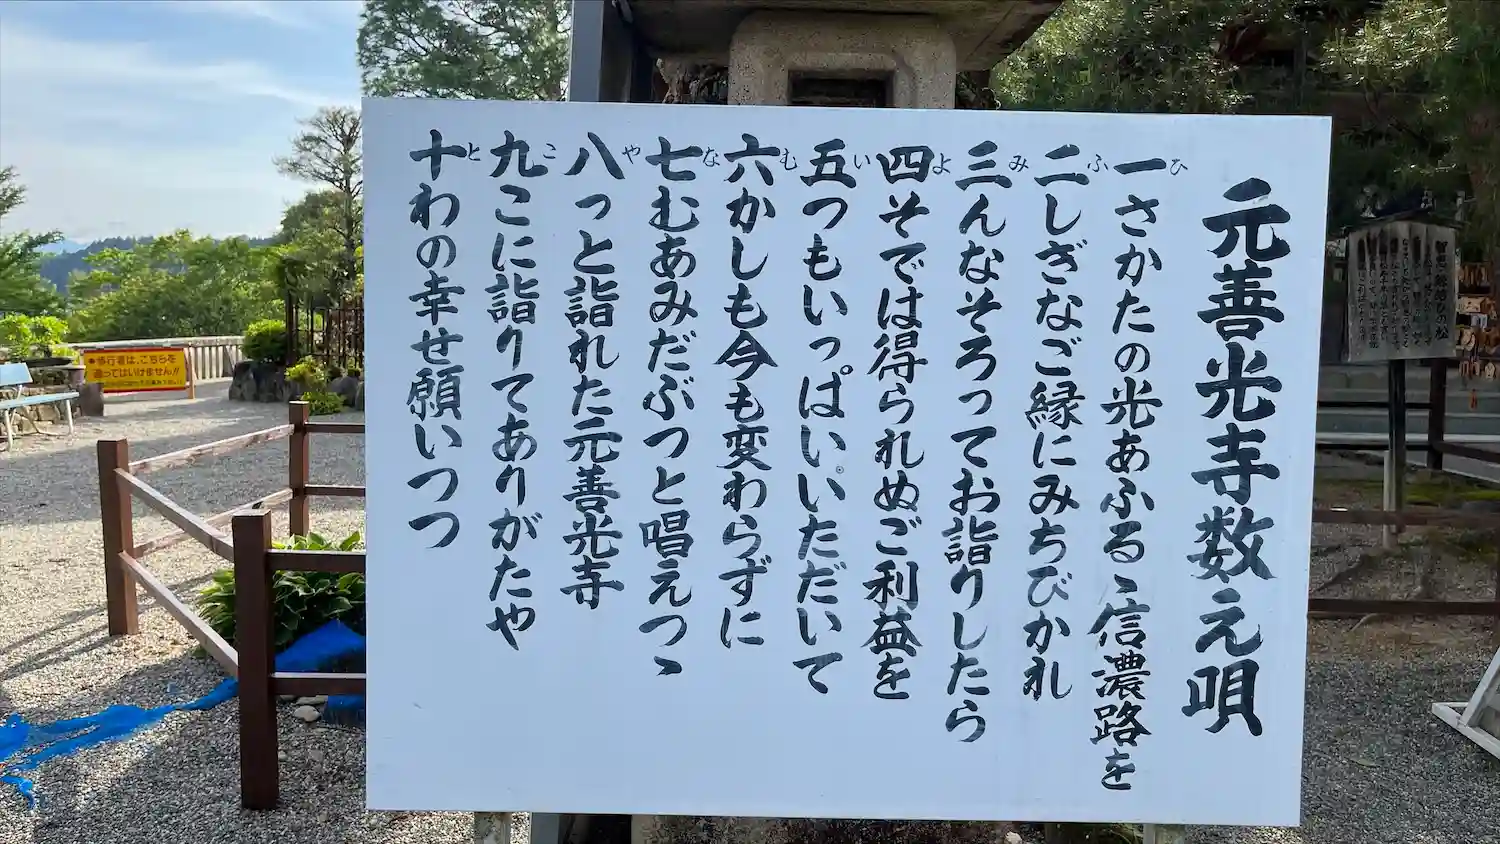 元善光寺数え唄
一さかたの光あふるゝ信濃路を
二しぎなご縁にみちびかれ
三んなそろってお詣りしたら
四そでは得られぬご利益を
五つもいっぱいいただいて
六かしも今も変わらずに
七むあみだぶつと唱えつゝ
八っと詣れた元善光寺
九こに詣りてありがたや
十わの幸せ願いつつ
ひ
ふ
み
よ
い
む
な
や
こ
と
歩行者は、こちらを
通ってはいけません!!